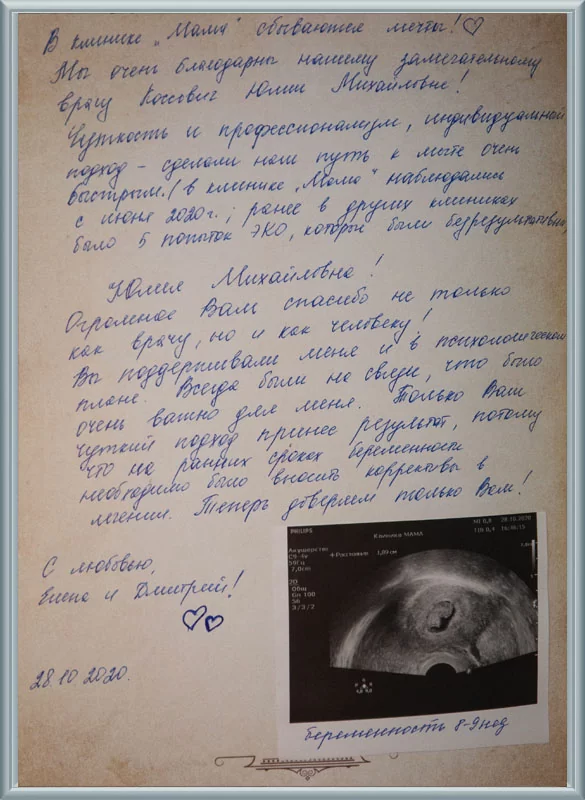 В клинике „Мама" сбываются мечты! ♡
Мы очень благодарны нашему замечательному
врачу Коссович Юлии Михайловне!
Чуткость и профессионализм, индивидуальный
подход – сделали наш путь к мечте очень
быстрым! (в клинике „Мама" наблюдались
с июня 2020 г.; ранее в других клиниках
было 5 попыток ЭКО, который были безрезультативны)
Юлия Михайловна!
Огромное Вам спасибо не только
как врачу, но и как человеку!
Вы поддерживали меня и в психологическом
плане. Всегда были на связи, что было
очень важно для меня. Только Ваш
чуткий подход принес результат, потому
что на ранних сроках беременности
необходимо было вносить коррективы в
лечения. Теперь доверяем только Вам!
С любовью,
Елена и Дмитрий!
28.10 2020.
PHILIPS
Клиника МАМА
MI 0,8 28.10.2020
TIS 0,4 16:46:15
Акушерство
C9-4v
59Гц
7,0cm
+ Расстояние 1,89 см
2D
Общ
Gn 100
56
3/3/2
беременность 8-9нед